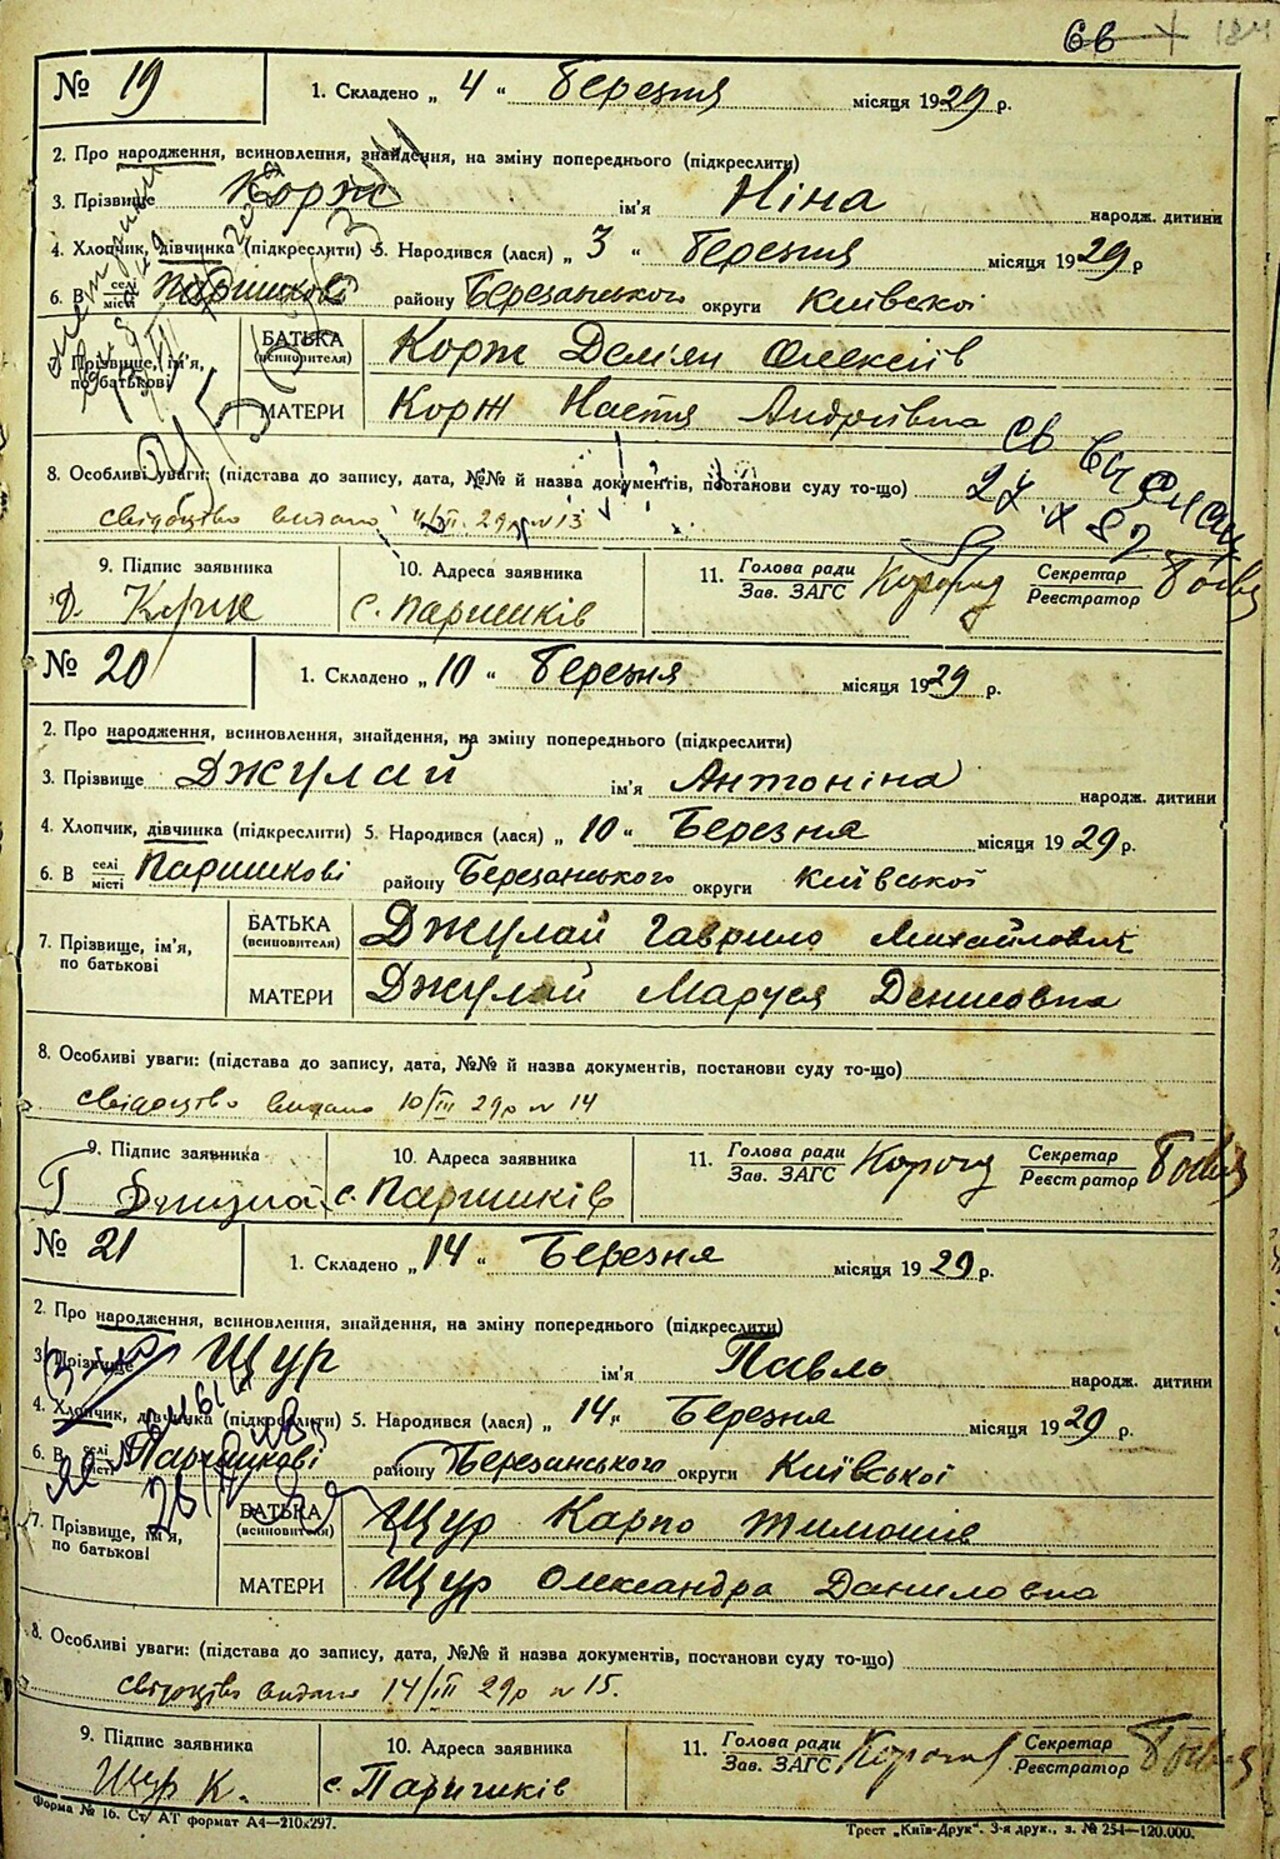 184
№ 19
1. Складено „ 4 “ Березня місяця 1929 р.
2. Про народження, всиновлення, знайдення, на зміну попереднього (підкреслити)
3. Прізвище Корж ім'я Ніна народж. дитини
4. Хлопчик, дівчинка (підкреслити) 5. Народився (лася) „ 3 “ Березня місяця 1929 р
6. В селі місті Паришкові району Березанського округи Київскої
7. Прізвище, ім'я, по батькові
БАТЬКА (всиновителя) Корж Демян Олексіїв
МАТЕРИ Корж Настя Андріївна
8. Особливі уваги: (підстава до запису, дата, №№ й назва документів, постанови суду то-що)
свідоцтво видано 4/III. 29р №13
9. Підпис заявника 10. Адреса заявника 11. Голова ради Зав. ЗАГС Секретар Реєстратор
Д. Корж с. Паришків
№ 20
1. Складено „ 10 “ Березня місяця 1929 р.
2. Про народження, всиновлення, знайдення, на зміну попереднього (підкреслити)
3. Прізвище Джулай ім'я Антоніна народж. дитини
4. Хлопчик, дівчинка (підкреслити) 5. Народився (лася) „ 10 “ Березня місяця 19 29 р.
6. В селі місті Паришкові району Березанського округи Київської
7. Прізвище, ім'я, по батькові
БАТЬКА (всиновителя) Джулай Гаврило Михайлович
МАТЕРИ Джулай Маруся Денисовна
8. Особливі уваги: (підстава до запису, дата, №№ й назва документів, постанови суду то-що)
свідоцтво видано 10/III 29р № 14
9. Підпис заявника 10. Адреса заявника 11. Голова ради Зав. ЗАГС Секретар Реєстратор
с. Паришків
№ 21
1. Складено „ 14 “ Березня місяця 19 29 р.
2. Про народження, всиновлення, знайдення, на зміну попереднього (підкреслити)
3. Прізвище Щур ім'я Павло народж. дитини
4. Хлопчик, дівчинка (підкреслити) 5. Народився (лася) „ 14 „ Березня місяця 19 29 р.
6. В селі місті Паришкові району Березанського округи Київської
7. Прізвище, ім'я, по батькові
БАТЬКА (всиновителя) Щур Карпо Тимошів
МАТЕРИ Щур Олександра Даниловна
8. Особливі уваги: (підстава до запису, дата, №№ й назва документів, постанови суду то-що)
свідоцтво видано 14/III 29р № 15.
9. Підпис заявника 10. Адреса заявника 11. Голова ради Зав. ЗАГС Секретар Реєстратор
Щур К. с. Паришків
Форма № 16. Ст/ АТ формат А4—210х297.
Трест „Київ-Друк“. 3-я друк., з. № 254—120.000.